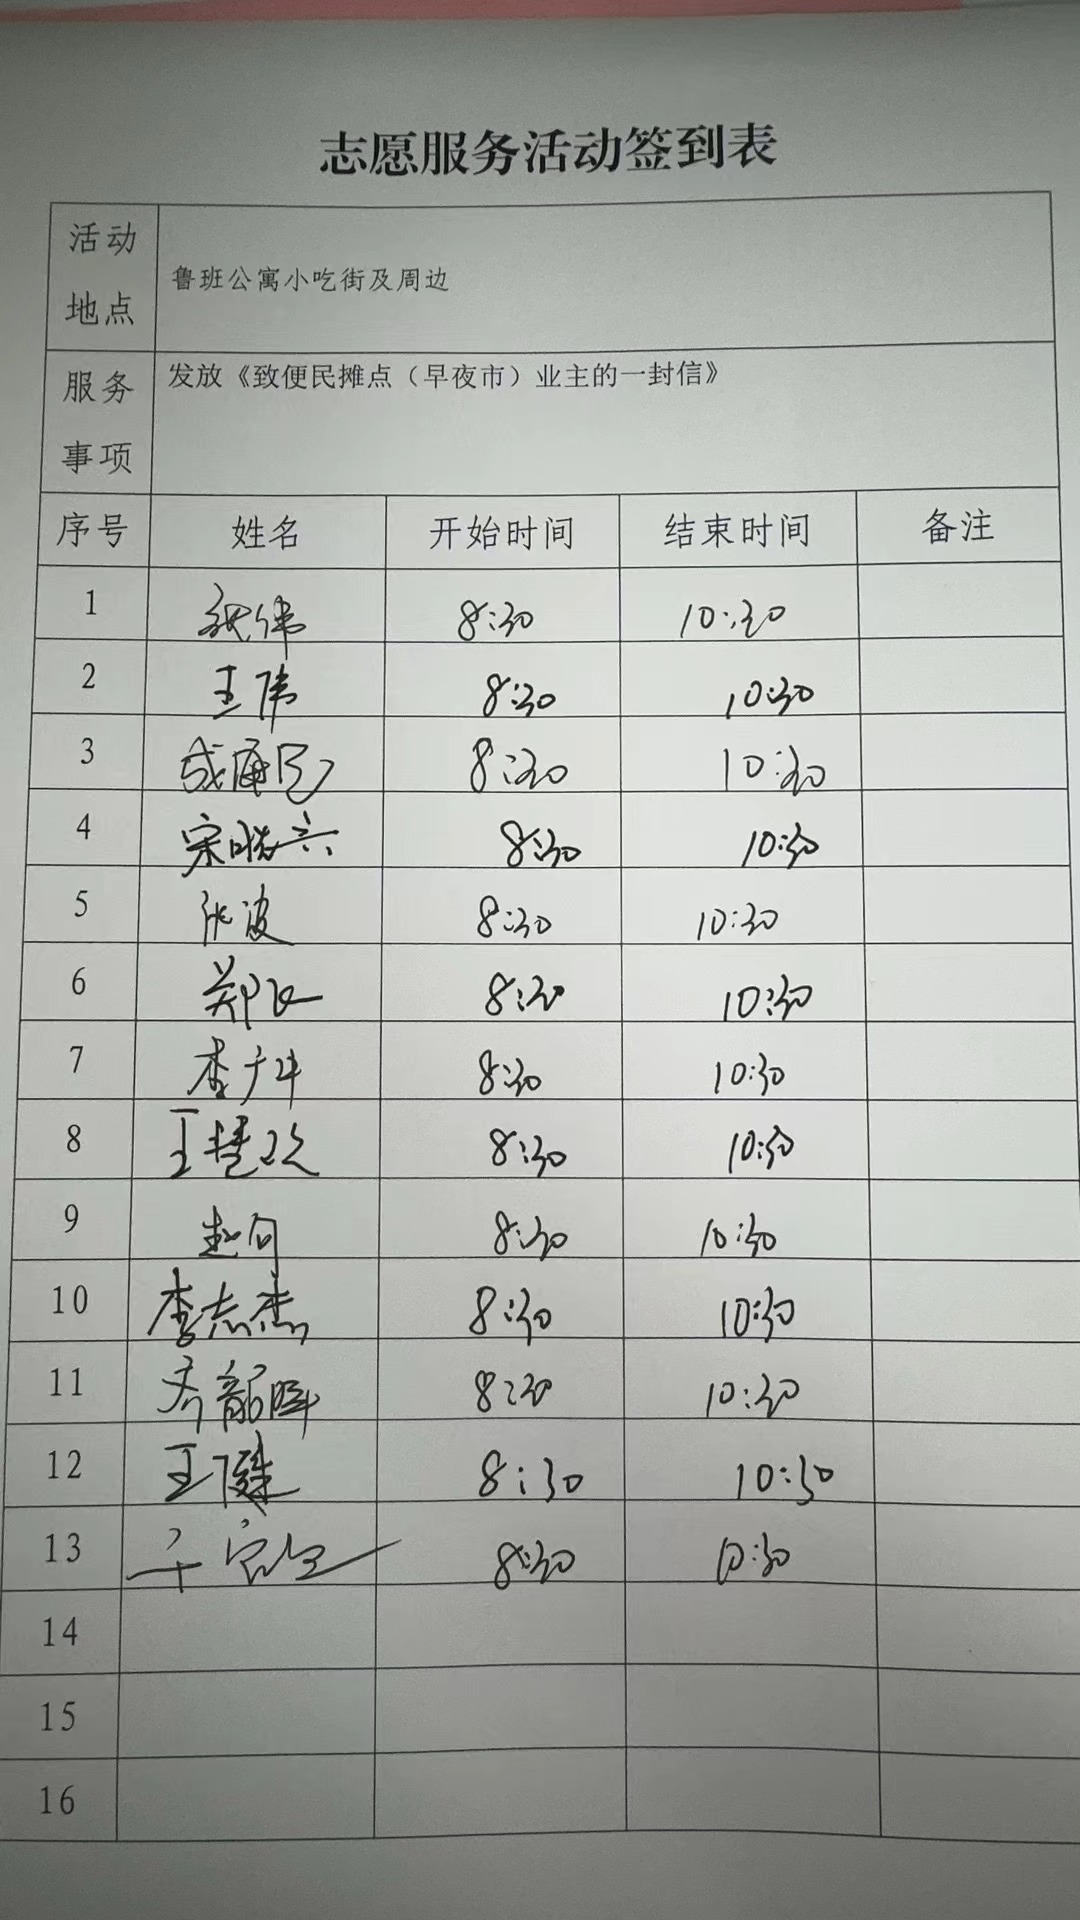 志愿服务活动签到表
活动地点 鲁班公寓小吃街及周边
服务事项 发放《致便民摊点（早夜市）业主的一封信》
序号 姓名 开始时间 结束时间 备注
1 张伟 8:30 10:30
2 王伟 8:30 10:30
3 8:30 10:30
4 宋晓 8:30 10:30
5 张波 8:30 10:30
6 郑 8:30 10:30
7 李 8:30 10:30
8 王慧 8:30 10:30
9 赵 8:30 10:30
10 李志杰 8:30 10:30
11 齐韶晖 8:30 10:30
12 王 8:30 10:30
13 8:30 10:30
14
15
16